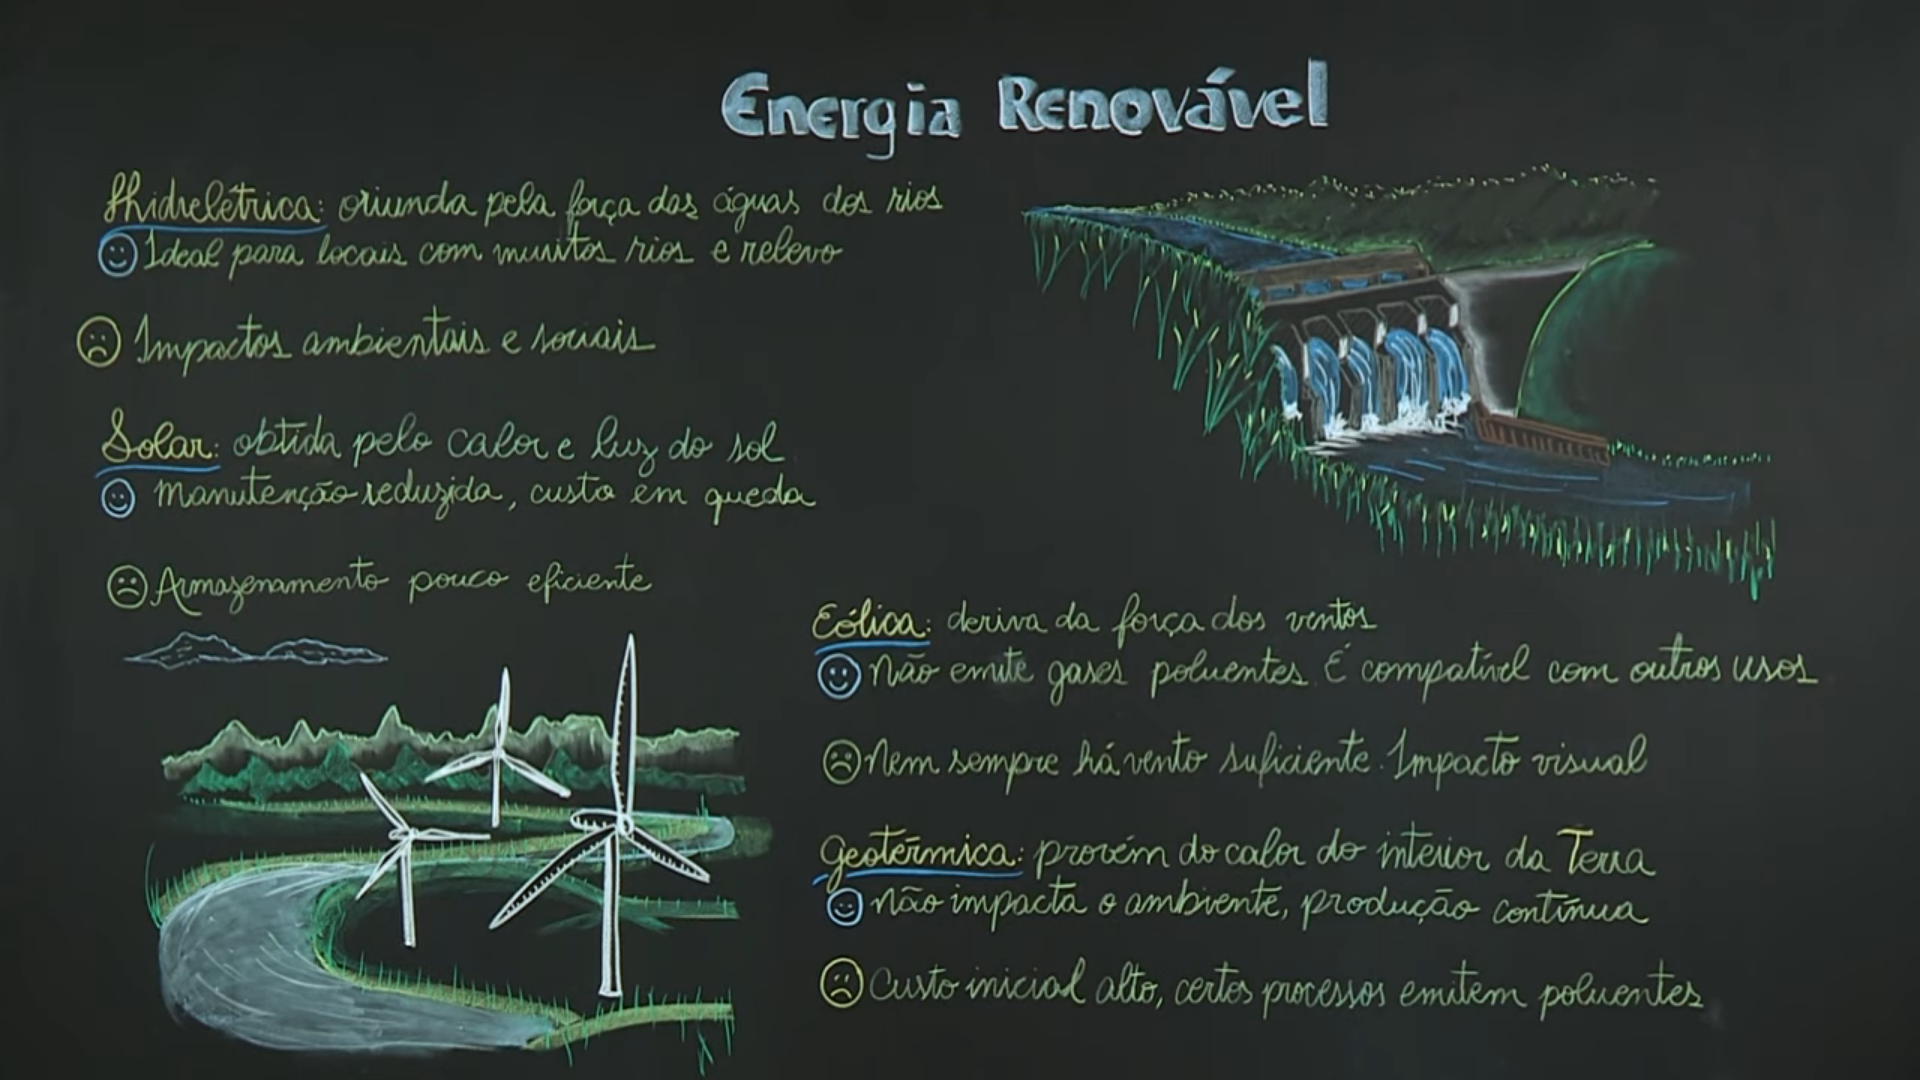 Energia Renovável
Hidrelétrica: oriunda pela força das águas dos rios
Ideal para locais com muitos rios e relevo
Impactos ambientais e sociais
Solar: obtida pelo calor e luz do sol
Manutenção reduzida, custo em queda
Armazenamento pouco eficiente
Eólica: deriva da força dos ventos
Não emite gases poluentes. É compatível com outros usos
Nem sempre há vento suficiente. Impacto visual
Geotérmica: provém do calor do interior da Terra
Não impacta o ambiente, produção contínua
Custo inicial alto, certos processos emitem poluentes